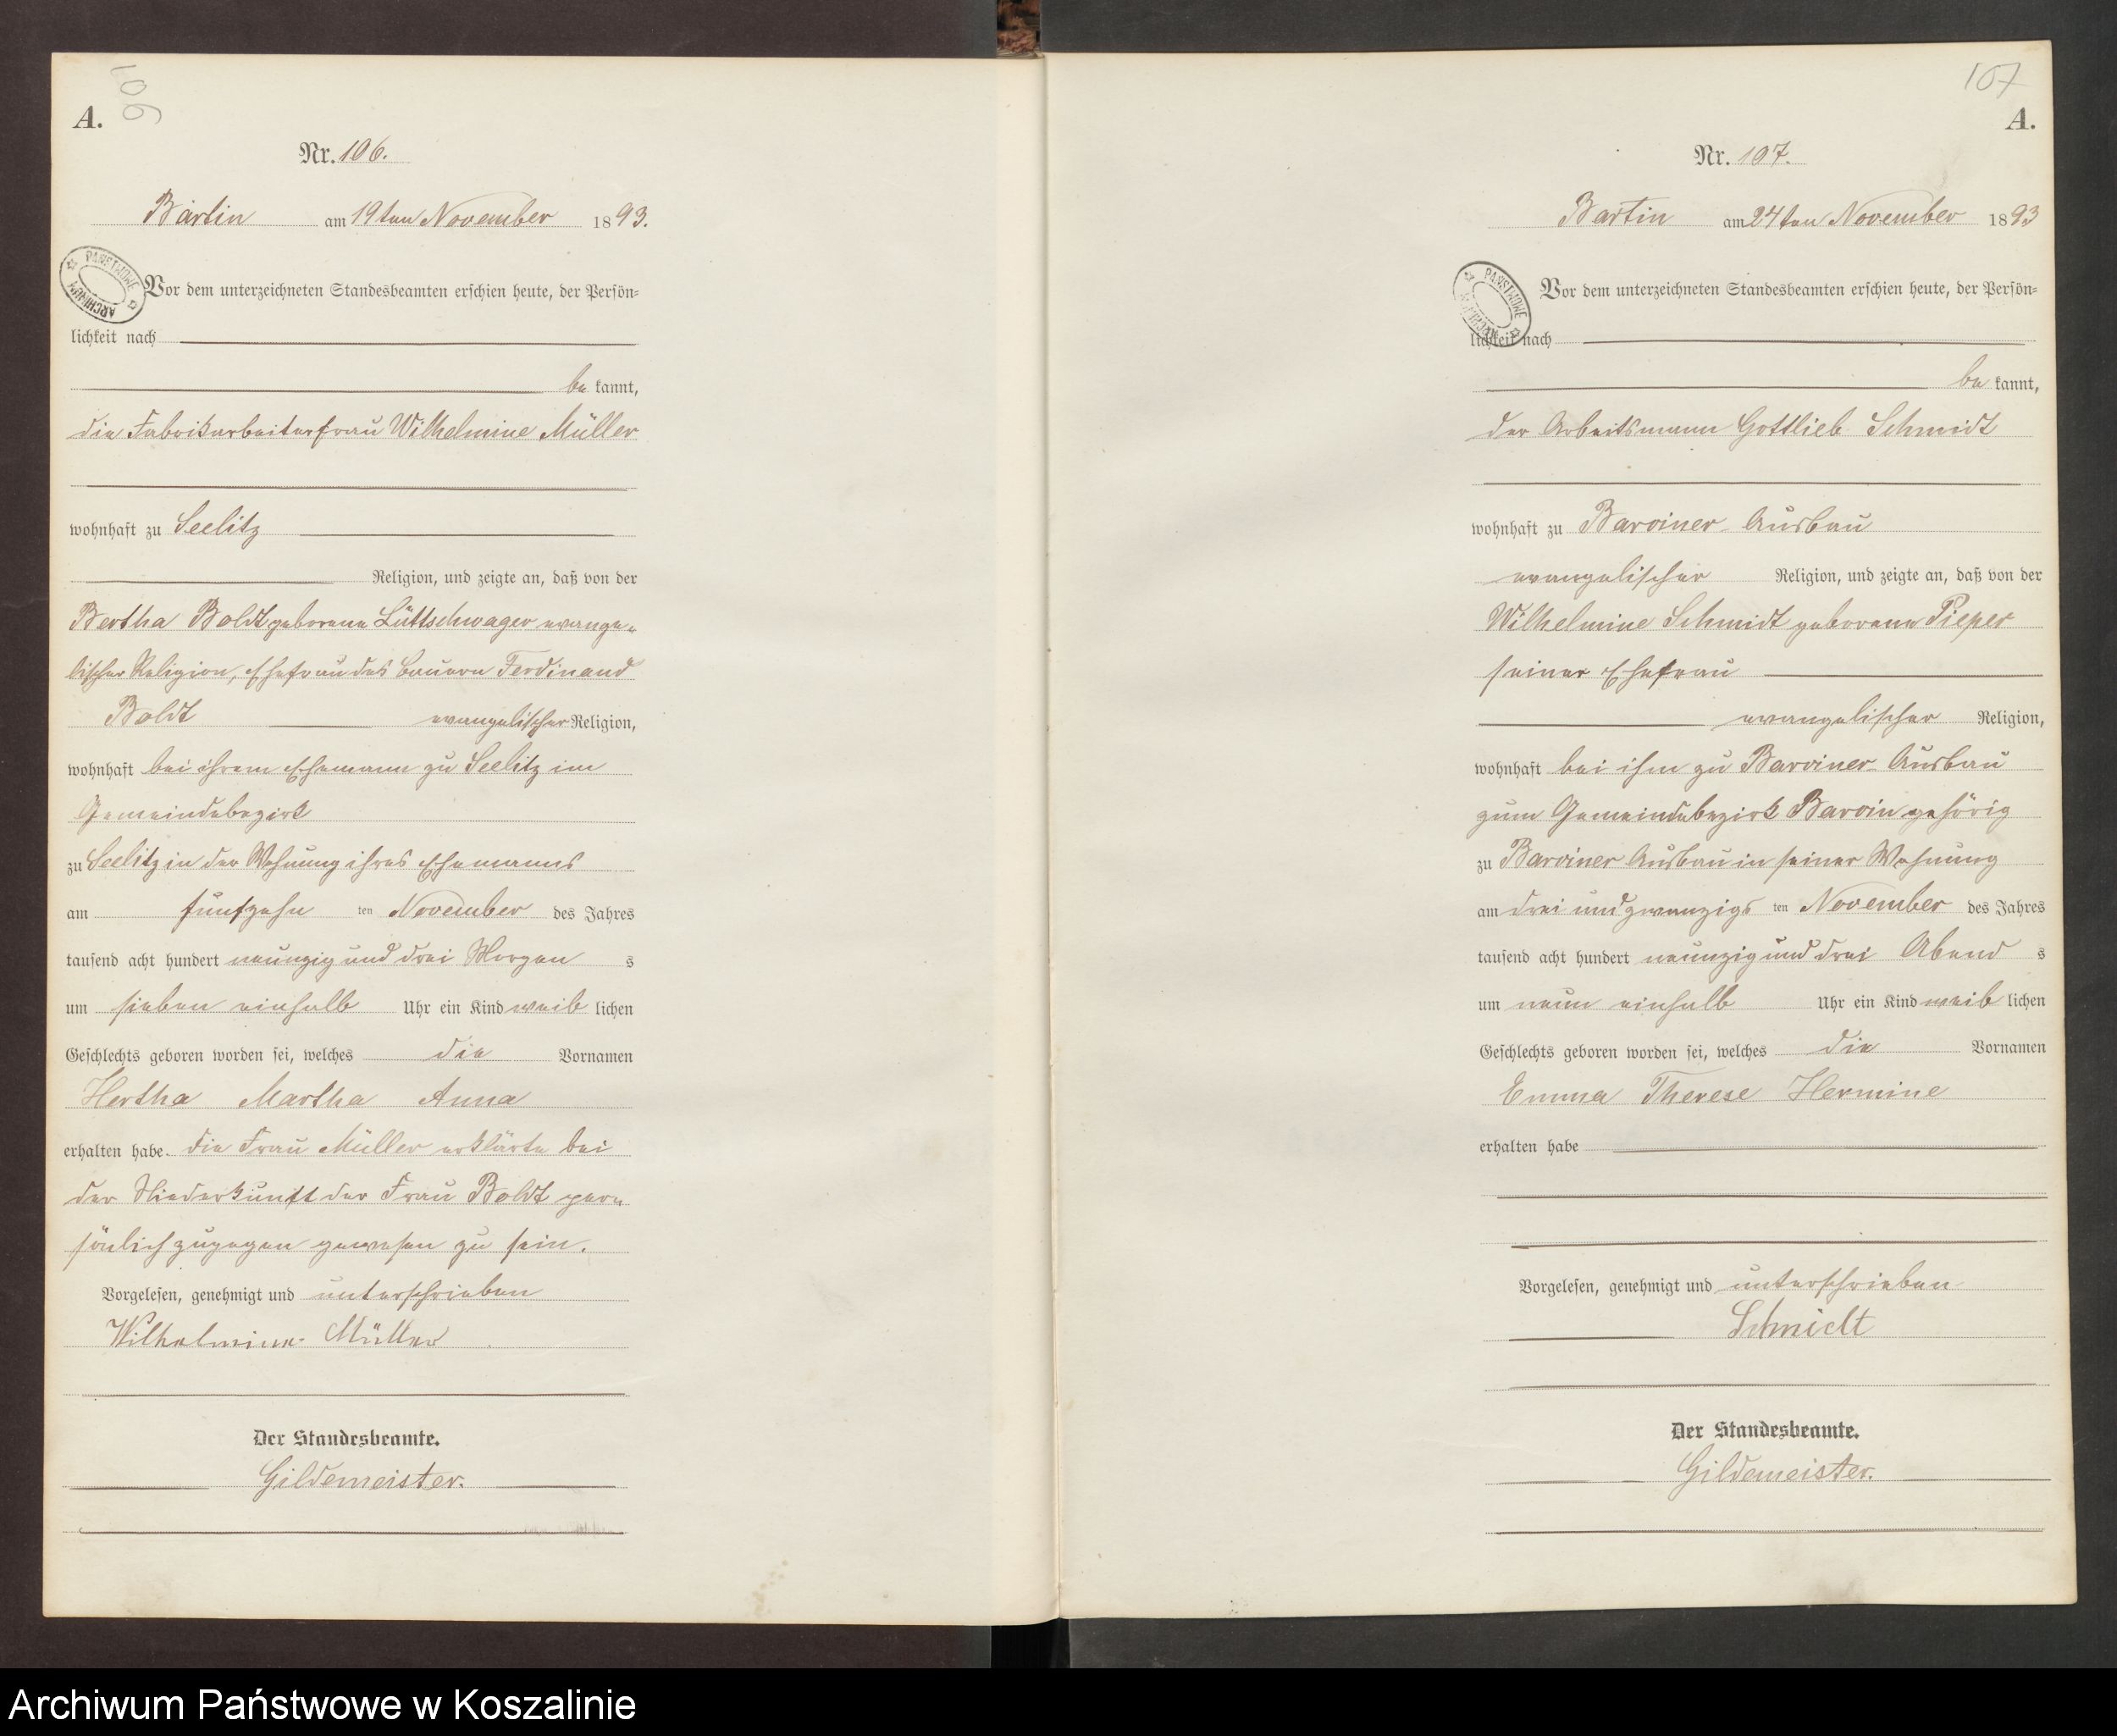 106
A.
Nr. 106.
Bartin am 19ten November 1893.
PAŃSTWOWE ARCHIWUM
Vor dem unterzeichneten Standesbeamten erschien heute, der Persön-
lichkeit nach
be kannt,
die Fabrikarbeiterfrau Wilhelmine Müller
wohnhaft zu Seelitz
Religion, und zeigte an, daß von der
Bertha Boldt geborene Lüttschwager evange-
lischer Religion, Ehefrau des Bauern Ferdinand
Boldt evangelischer Religion,
wohnhaft bei ihrem Ehemann zu Seelitz im
Gemeindebezirk
zu Seelitz in der Wohnung ihres Ehemannes
am fünfzehn ten November des Jahres
tausend acht hundert neunzig und drei Morgen s
um sieben einhalb Uhr ein Kind weib lichen
Geschlechts geboren worden sei, welches die Vornamen
Hertha Martha Anna
erhalten habe. Die Frau Müller erklärte bei
der Niederkunft der Frau Boldt per-
sönlich zugegen gewesen zu sein.
Vorgelesen, genehmigt und unterschrieben
Wilhelmine Müller
Der Standesbeamte.
Gildemeister.
107
A.
Nr. 107.
Bartin am 24ten November 1893
PAŃSTWOWE ARCHIWUM
Vor dem unterzeichneten Standesbeamten erschien heute, der Persön-
lichkeit nach
be kannt,
der Arbeitsmann Gottlieb Schmidt
wohnhaft zu Barviner Ausbau
evangelischer Religion, und zeigte an, daß von der
Wilhelmine Schmidt geborene Pieper
seiner Ehefrau
evangelischer Religion,
wohnhaft bei ihm zu Barviner Ausbau
zum Gemeindebezirk Barvin gehörig
zu Barviner Ausbau in seiner Wohnung
am drei und zwanzigs ten November des Jahres
tausend acht hundert neunzig und drei Abend s
um neun einhalb Uhr ein Kind weib lichen
Geschlechts geboren worden sei, welches die Vornamen
Emma Therese Hermine
erhalten habe
Vorgelesen, genehmigt und unterschrieben
Schmidt
Der Standesbeamte.
Gildemeister.
Archiwum Państwowe w Koszalinie